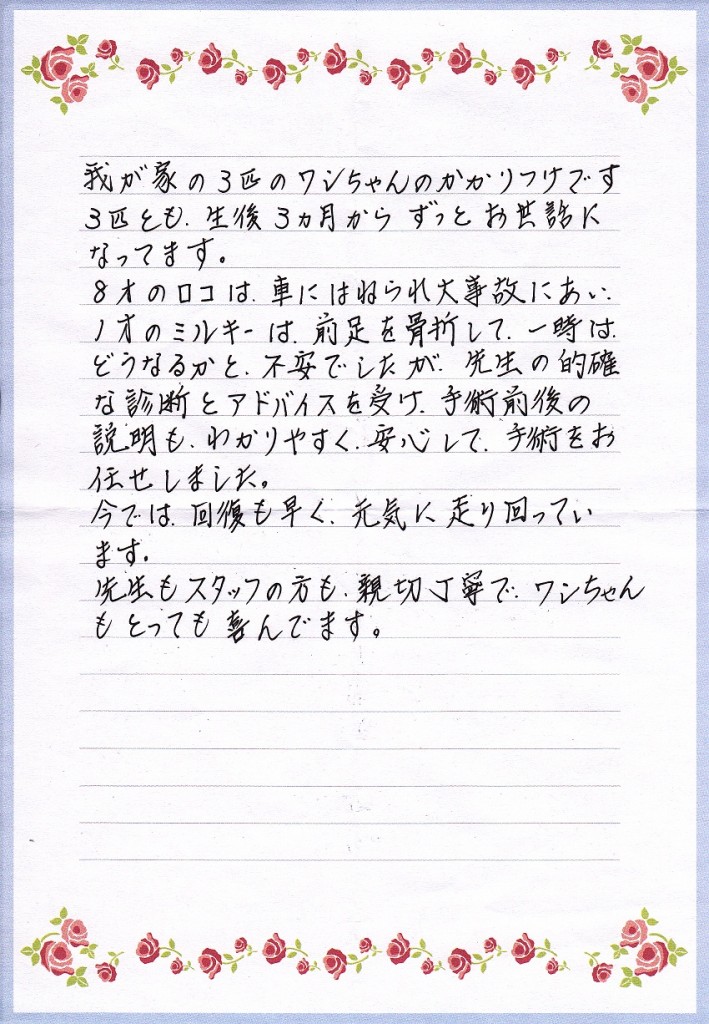 我が家の3匹のワンちゃんのかかりつけです
3匹とも、生後3ヵ月からずっとお世話に
なってます。
8才のロコは、車にはねられ大事故にあい、
1才のミルキーは、前足を骨折して、一時は、
どうなるかと、不安でしたが、先生の的確
な診断とアドバイスを受け、手術前後の
説明も、わかりやすく、安心して、手術をお
任せしました。
今では、回復も早く、元気に走り回ってい
ます。
先生もスタッフの方も、親切丁寧で、ワンちゃん
もとっても喜んでます。